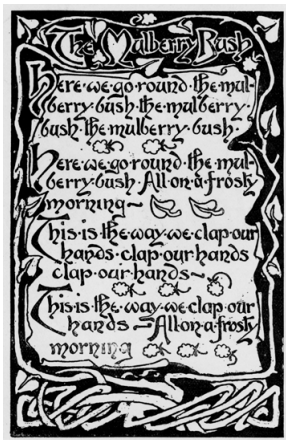 The Mulberry Bush
Here·we·go·round·the·mul-
berry·bush·the·mulberry·
bush·the·mulberry·bush·
Here·we·go·round·the·mul-
berry·bush·All·on·a·frosty
morning~
This·is·the·way·we·clap·our
hands·clap·our·hands
clap·our·hands~
This·is·the·way·we·clap·our
hands~All·on·a·frosty
morning